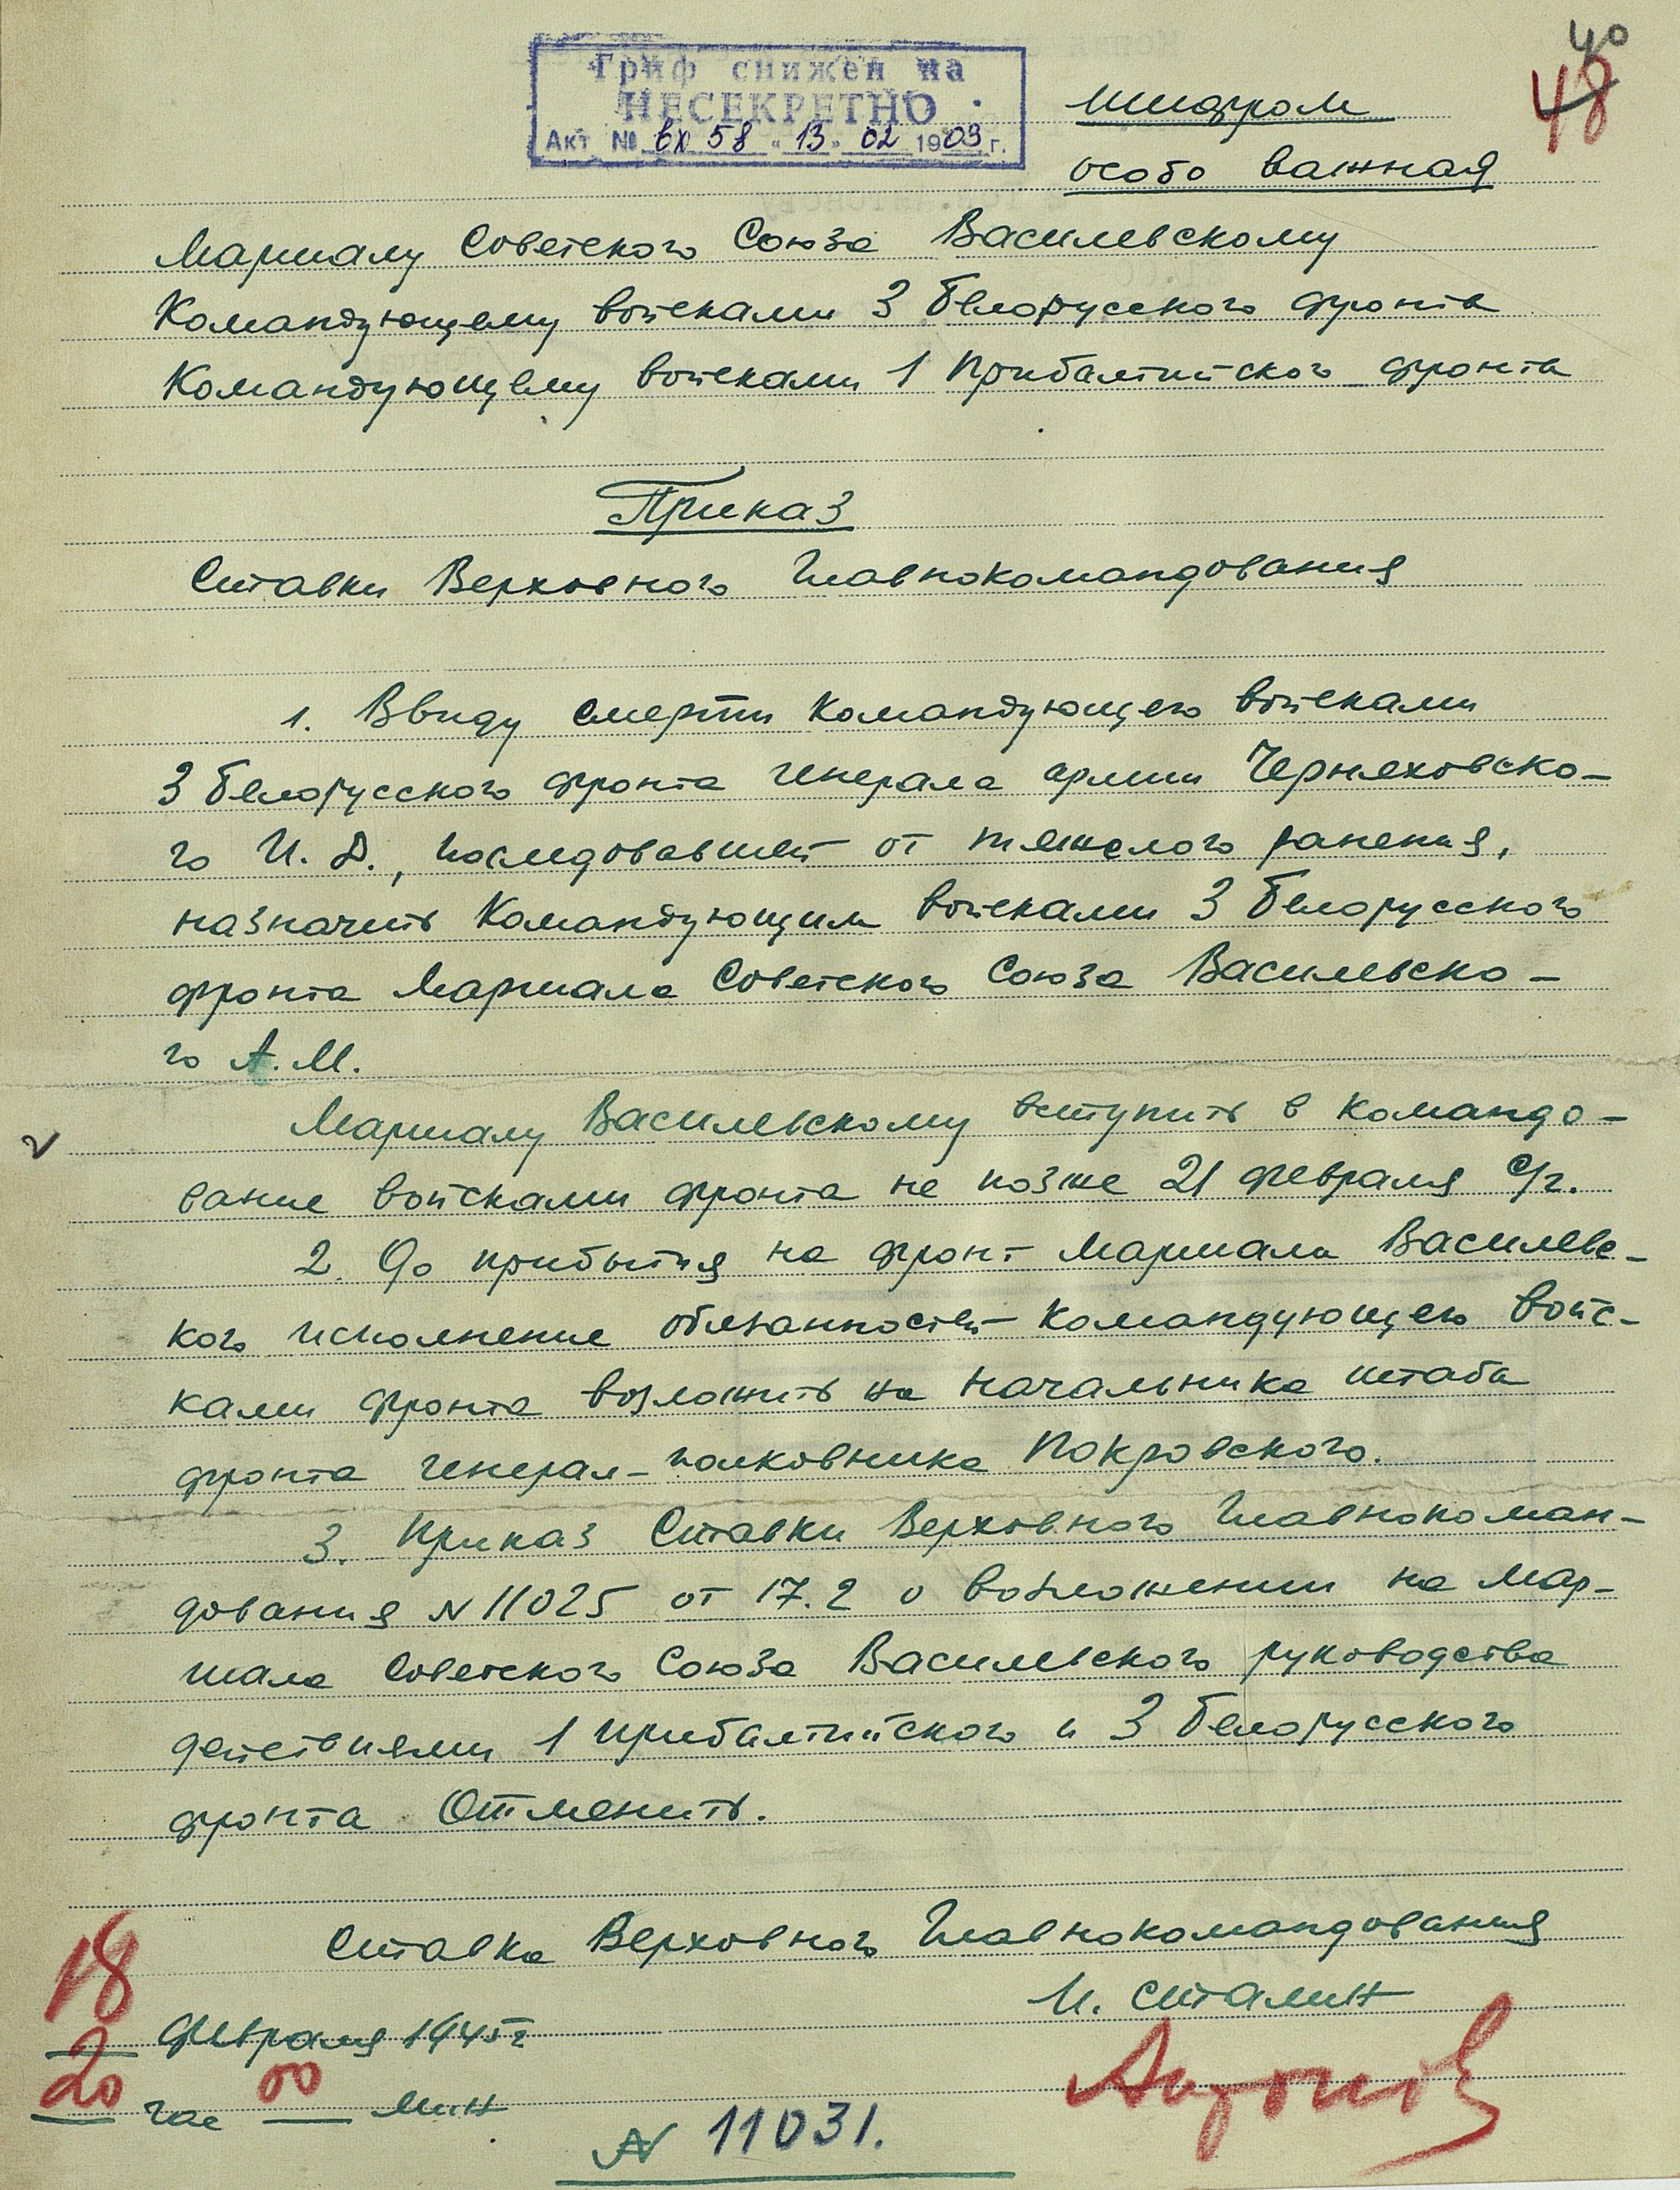 40
48
Гриф снижен на
НЕСЕКРЕТНО
Акт № вх 58 "13" 02 1909 г.
шифром
особо важная
Маршалу Советского Союза Василевскому
Командующему войсками 3 Белорусского фронта
Командующему войсками 1 Прибалтийского фронта
Приказ
Ставки Верховного Главнокомандования
1. Ввиду смерти Командующего войсками
3 Белорусского фронта генерала армии Черняховско-
го И. Д., последовавшей от тяжелого ранения,
назначить Командующим войсками 3 Белорусского
фронта Маршала Советского Союза Василевско-
го А. М.
Маршалу Василевскому вступить в командо-
вание войсками фронта не позже 21 февраля с/г.
2. До прибытия на фронт Маршала Василевс-
кого исполнение обязанностей Командующего войс-
ками фронта возложить на начальника штаба
фронта генерал-полковника Покровского.
3. Приказ Ставки Верховного Главнокоман-
дования N 11025 от 17.2 о возложении на Мар-
шала Советского Союза Василевского руководства
действиями 1 Прибалтийского и 3 Белорусского
фронта Отменить.
Ставка Верховного Главнокомандования
И. Сталин
Антонов
18 февраля 1945 г
20 час 00 мин
N 11031.